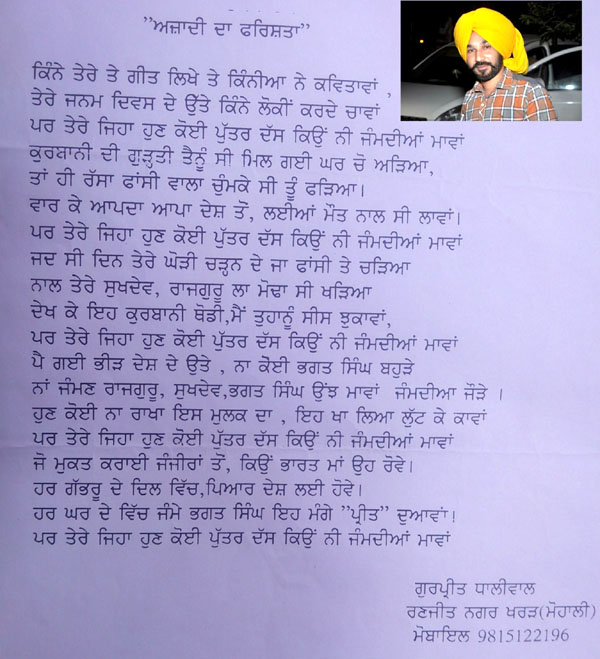 ”ਅਜ਼ਾਦੀ ਦਾ ਫਰਿਸ਼ਤਾ”
ਕਿੰਨੇ ਤੇਰੇ ਤੇ ਗੀਤ ਲਿਖੇ ਤੇ ਕਿੰਨੀਆ ਨੇ ਕਵਿਤਾਵਾਂ ,
ਤੇਰੇ ਜਨਮ ਦਿਵਸ ਦੇ ਉੱਤੇ ਕਿੰਨੇ ਲੋਕੀਂ ਕਰਦੇ ਚਾਵਾਂ
ਪਰ ਤੇਰੇ ਜਿਹਾ ਹੁਣ ਕੋਈ ਪੁੱਤਰ ਦੱਸ ਕਿਉਂ ਨੀ ਜੰਮਦੀਆਂ ਮਾਵਾਂ
ਕੁਰਬਾਨੀ ਦੀ ਗੁੜ੍ਹਤੀ ਤੈਨੂੰ ਸੀ ਮਿਲ ਗਈ ਘਰ ਚੋ ਅੜਿਆ,
ਤਾਂ ਹੀ ਰੱਸਾ ਫਾਂਸੀ ਵਾਲਾ ਚੁੰਮਕੇ ਸੀ ਤੂੰ ਫੜਿਆ।
ਵਾਰ ਕੇ ਆਪਦਾ ਆਪਾ ਦੇਸ਼ ਤੋਂ, ਲਈਆਂ ਮੌਤ ਨਾਲ ਸੀ ਲਾਵਾਂ।
ਪਰ ਤੇਰੇ ਜਿਹਾ ਹੁਣ ਕੋਈ ਪੁੱਤਰ ਦੱਸ ਕਿਉਂ ਨੀ ਜੰਮਦੀਆਂ ਮਾਵਾਂ
ਜਦ ਸੀ ਦਿਨ ਤੇਰੇ ਘੋੜੀ ਚੜ੍ਹਨ ਦੇ ਜਾ ਫਾਂਸੀ ਤੇ ਚੜਿਆ
ਨਾਲ ਤੇਰੇ ਸੁਖਦੇਵ, ਰਾਜਗੁਰੂ ਲਾ ਮੋਢਾ ਸੀ ਖੜਿਆ
ਦੇਖ ਕੇ ਇਹ ਕੁਰਬਾਨੀ ਥੋਡੀ,ਮੈਂ ਤੁਹਾਨੂੰ ਸੀਸ ਝੁਕਾਵਾਂ,
ਪਰ ਤੇਰੇ ਜਿਹਾ ਹੁਣ ਕੋਈ ਪੁੱਤਰ ਦੱਸ ਕਿਉਂ ਨੀ ਜੰਮਦੀਆਂ ਮਾਵਾਂ
ਪੈ ਗਈ ਭੀੜ ਦੇਸ਼ ਦੇ ਉਤੇ , ਨਾ ਕੋਈ ਭਗਤ ਸਿੰਘ ਬਹੁੜੇ
ਨਾਂ ਜੰਮਣ ਰਾਜਗੁਰੂ, ਸੁਖਦੇਵ,ਭਗਤ ਸਿੰਘ ਉਂਝ ਮਾਵਾਂ ਜੰਮਦੀਆ ਜੌੜੇ ।
ਹੁਣ ਕੋਈ ਨਾ ਰਾਖਾ ਇਸ ਮੁਲਕ ਦਾ , ਇਹ ਖਾ ਲਿਆ ਲੁੱਟ ਕੇ ਕਾਵਾਂ
ਪਰ ਤੇਰੇ ਜਿਹਾ ਹੁਣ ਕੋਈ ਪੁੱਤਰ ਦੱਸ ਕਿਉਂ ਨੀ ਜੰਮਦੀਆਂ ਮਾਵਾਂ
ਜੋ ਮੁਕਤ ਕਰਾਈ ਜੰਜੀਰਾਂ ਤੋਂ, ਕਿਉਂ ਭਾਰਤ ਮਾਂ ਉਹ ਰੋਵੇ।
ਹਰ ਗੱਭਰੂ ਦੇ ਦਿਲ ਵਿੱਚ,ਪਿਆਰ ਦੇਸ਼ ਲਈ ਹੋਵੇ।
ਹਰ ਘਰ ਦੇ ਵਿੱਚ ਜੰਮੇ ਭਗਤ ਸਿੰਘ ਇਹ ਮੰਗੇ ”ਪ੍ਰੀਤ” ਦੁਆਵਾਂ।
ਪਰ ਤੇਰੇ ਜਿਹਾ ਹੁਣ ਕੋਈ ਪੁੱਤਰ ਦੱਸ ਕਿਉਂ ਨੀ ਜੰਮਦੀਆਂ ਮਾਵਾਂ
ਗੁਰਪ੍ਰੀਤ ਧਾਲੀਵਾਲ
ਰਣਜੀਤ ਨਗਰ ਖਰੜ(ਮੋਹਾਲੀ)
ਮੋਬਾਇਲ 9815122196